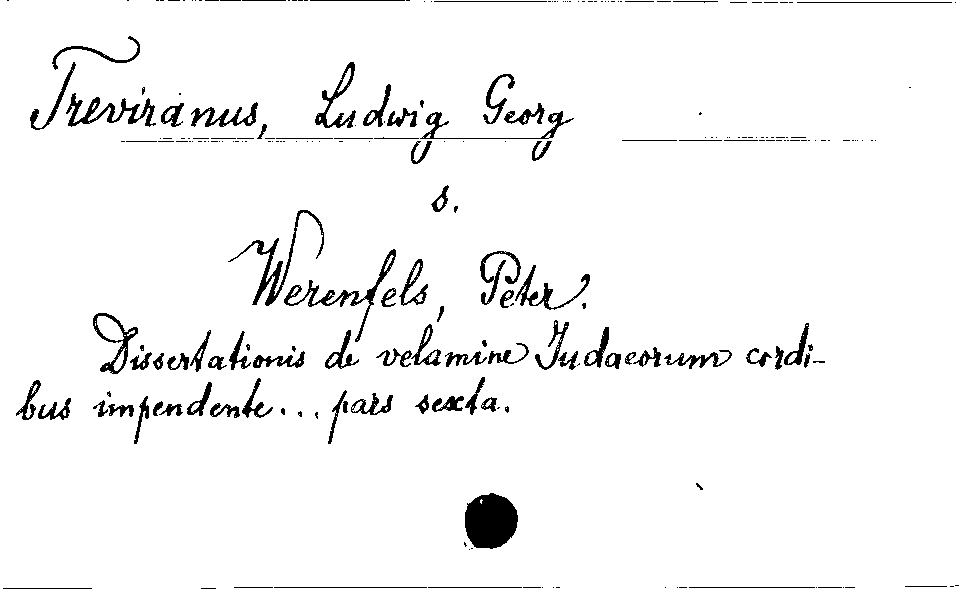 Treviranus, Ludwig Georg
s.
Werenfels, Peter.
Dissertationis de velamine Judaeorum cordi-
bus impendente... pars sexta.